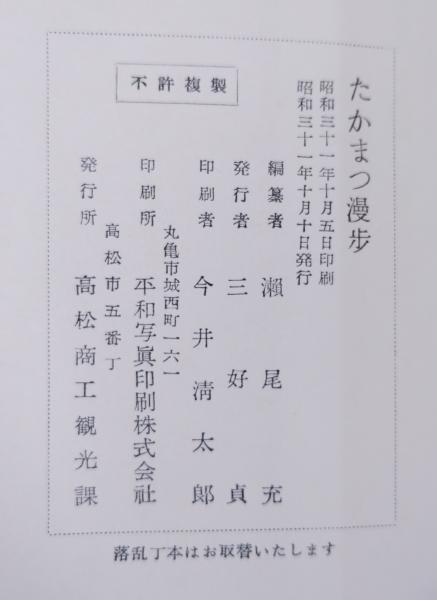 たかまつ漫歩
昭和三十一年十月五日印刷
昭和三十一年十月十日発行
不許複製
編纂者 瀬尾充
発行者 三好貞
印刷者 今井清太郎
丸亀市城西町一六一
印刷所 平和写真印刷株式会社
高松市五番丁
発行所 高松商工観光課
落乱丁本はお取替いたします